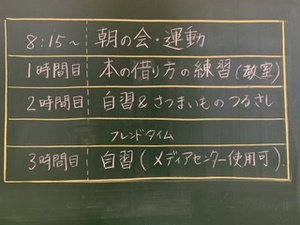 8:15～ 朝の会・運動
1時間目 本の借り方の練習(教室)
2時間目 自習&さつまいものつるさし
フレンドタイム
3時間目 自習(メディアセンター使用可)